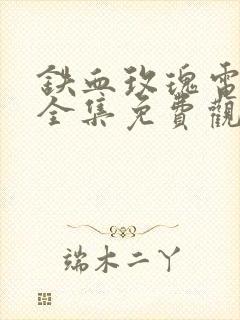 鉄血玫瑰電
全集免費觀
端木二丫